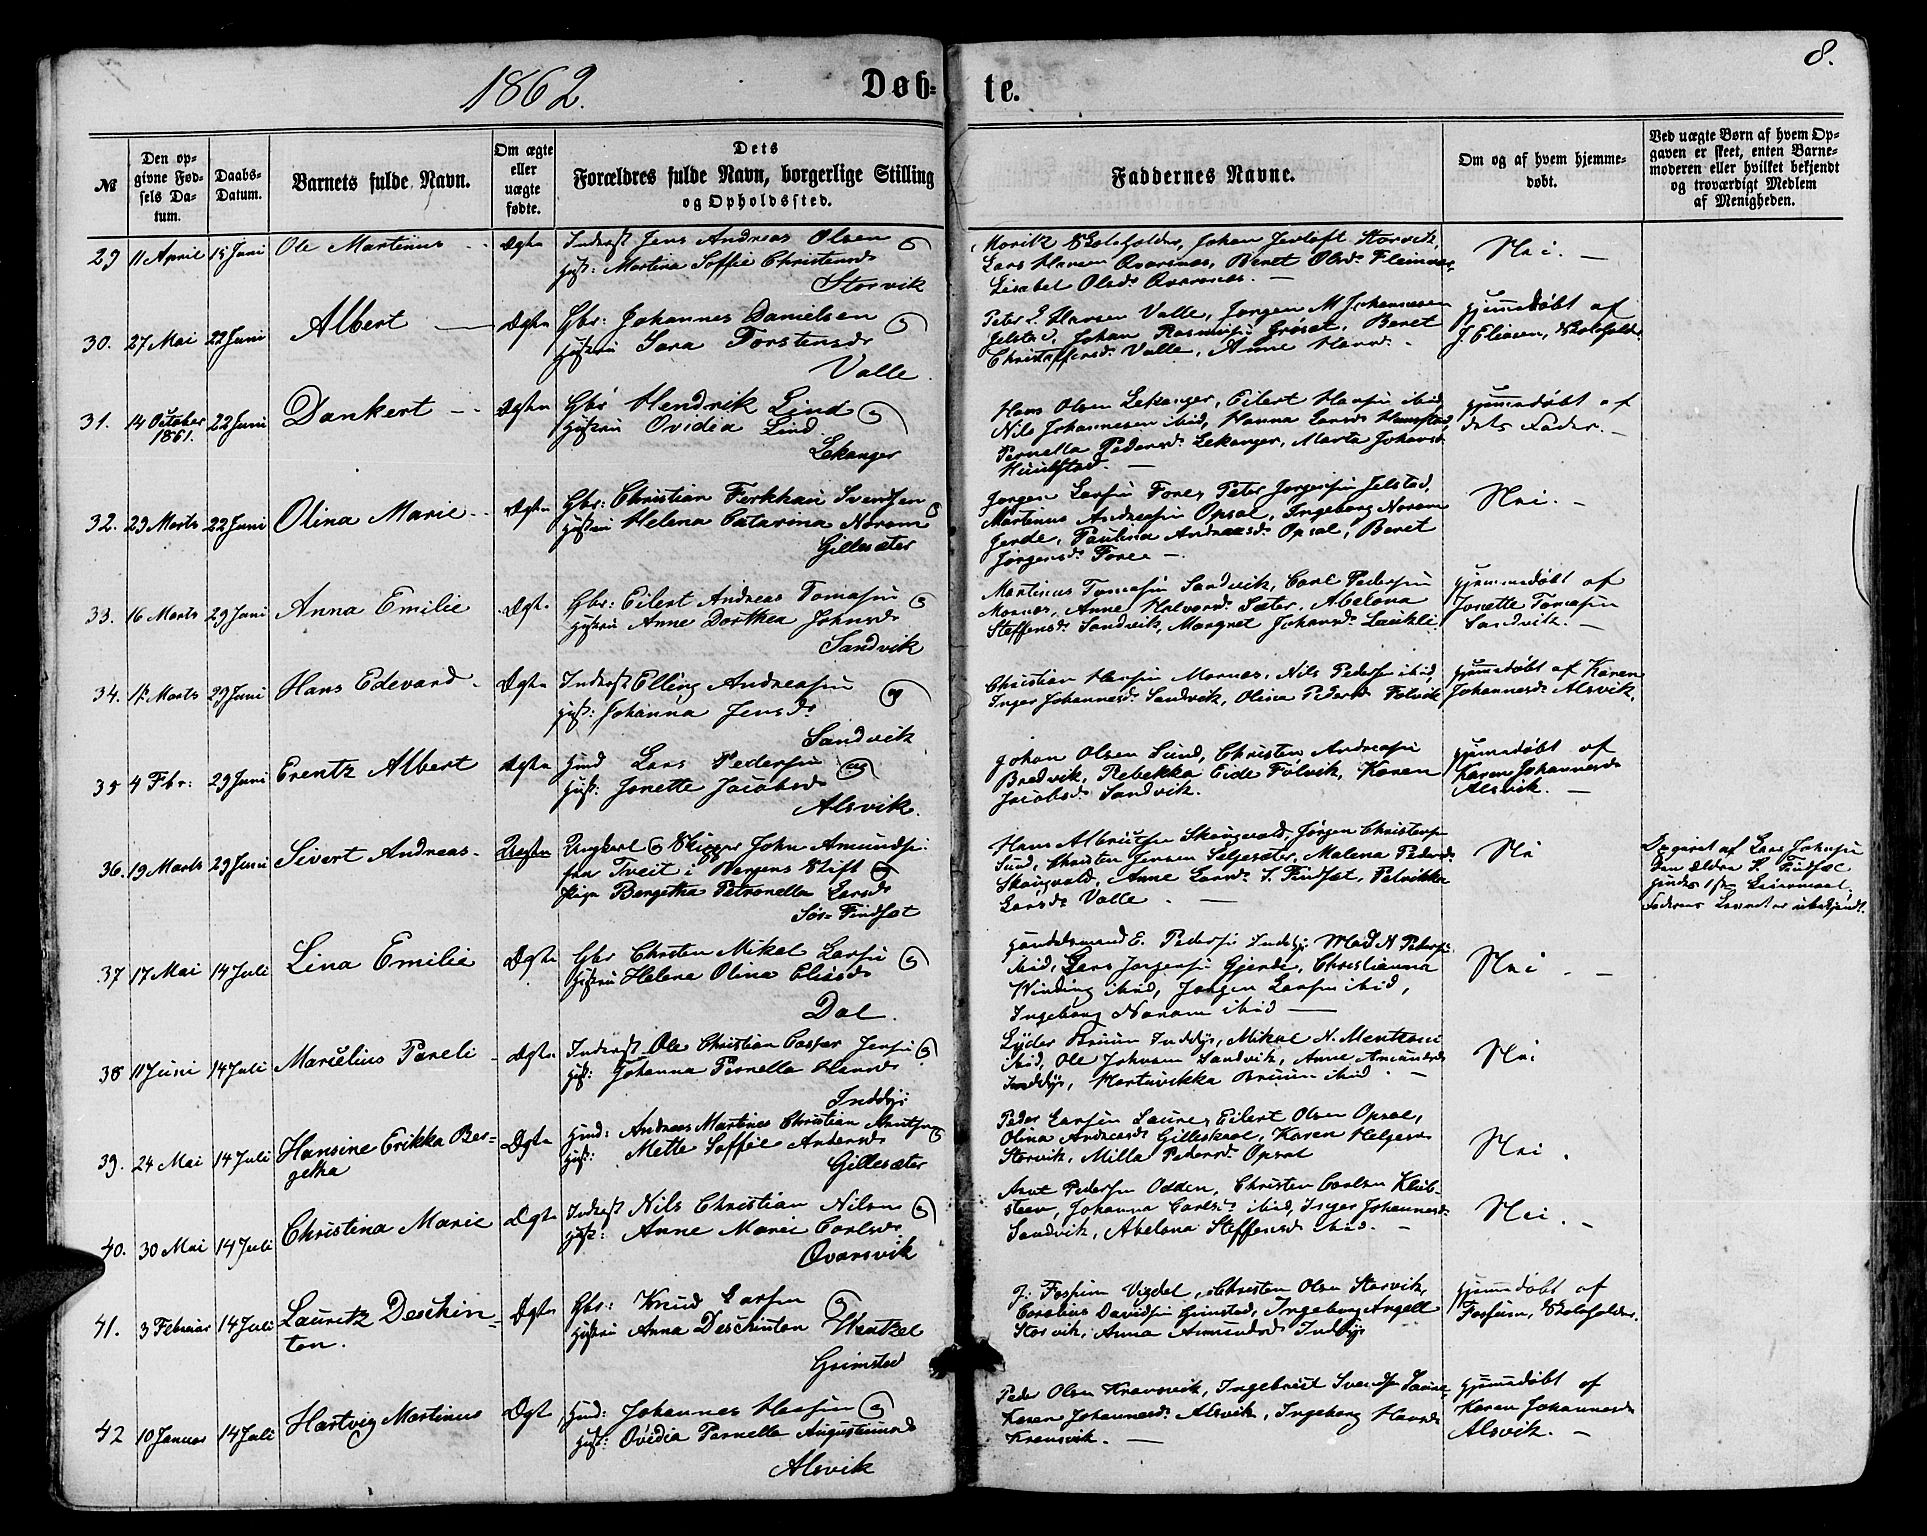 1862.
Døb-
te.
8.
№
Den op-
givne Fød-
sels Da-
tum.
Daabs-
Datum.
Barnets fulde Navn.
Om ægte
eller
uægte
fødte.
Dets
Forældres fulde Navn, borgerlige Stilling
og Opholdssted.
Faddernes Navne.
Om og af hvem hjemme-
døbt.
Ved uægte Børn af hvem Op-
gaven er skeet, enten Barne-
moderen eller hvilket bekjendt
og troværdigt Medlem
af Menigheden.
29 11 April 15 Juni Ole Martinus Ægte
Jens Andreas Olsen
Hust: Martina Soffie
Storvik
Johan Storvik,
Lars Hansen Beret Olsd.
Lisabet Olsd.
Nei.
30. 27 Mai 22 Juni Albert Ægte
Gbr: Johannes Danielsen
Hustru Sara Torstensd.
Valle.
Peter Hansen Valle, Jørgen M. Johannesen
Jelstad, Johan Beret
Valle, Anne
Hjemmedøbt af
J. Eliasen, Skoleholder
31. 14 October
1861. 22 Juni Dankert Ægte
Gbr Hendrik Lind
Hustru Ovidia Lind
Lekanger
Hans Olsen Lekanger, Eilert Hansen ibid,
Nils Johannesen ibid, Hanna Larsd.
Pernella Pedersd. Lekanger, Marta Johansd.
Hjemmedøbt af
dets Fader.
32. 23 Marts 22 Juni Olina Marie Ægte
Gbr: Christian Svendsen
Hustru Helena Catarina Norum
Gillesæter
Jørgen Larsen Fore, Peter Jørgensen Jelstad,
Martinus Andreasen Opsal, Ingeborg Norum
Gjerde, Paulina Andreasd. Opsal, Beret
Jørgensd. Fore
Nei.
33. 16 Marts 29 Juni Anna Emilie Ægte
Gbr: Eilert Andreas Tomasen
Hustru Anne Dorthea Johnsd.
Sandvik
Martinus Tomasen Sandvik, Carl Pedersen
Mornes, Anne Halvorsd. Sæter, Abelona
Steffensd. Sandvik, Margret Johansd.
Hjemmedøbt af
Jonette Tomasen
Sandvik.
34. Marts 29 Juni Hans Edevard Ægte
Inderst Elling Andreasen
Hust: Johanna Jensd.
Sandvik
Christian Hansen Mornes, Nils Pedersen ibid,
Inger Johannesd. Sandvik, Olina Pedersd. Følvik
Hjemmedøbt af Karen
Johannesd. Alsvik.
35 4 Fbr: 29 Juni Erentz Albert Ægte
Huusmd Lars Pedersen
Hust: Jonette Jacobsd.
Alsvik.
Johan Olsen Sund, Christen Andreasen
Bredvik, Rebekka Eide Følvik, Karen
Jacobsd. Sandvik.
Hjemmedøbt af
Karen Johannesd.
Alsvik.
36. 19 Marts 29 Juni Sivert Andreas Uægte
Ungkarl Skipper John Amundsen
fra Tveit i Bergens Stift
Pige Bergitha Petronella Larsd.
Sør-Findset
Hans Albrigtsen Skaugvold, Jørgen Christensen
Sund, Christen Jensen Seljesæter, Malena Pedersd.
Skaugvold, Anne Larsd. S. Findset,
Larsd. Valle
Nei
Opgivet af Lars Johnsen
den ældre S. Findset
hendes 1ste Leiermaal.
Faderens ubekjendt.
37 17 Mai 14 Juli Lina Emilie Ægte
Gbr Christen Mikal Larsen
Hustru Helena Olina Eliasd.
Dal.
Handelsmand E. Pedersen Inddyr, Mad N Pedersen
ibid, Lars Jørgensen Gjerde, Christianna
Winding ibid, Jørgen Larsen ibid,
Ingeborg Norum ibid
Nei
38 11 Juni 14 Juli Marselius Pareli Ægte
Inderst Ole Christian Casper Jensen
Hust: Johanna Pernella Hansd.
Inddyr
Lyder Bruun Inddyr, Mikal N. Mentzoni
ibid, Ole Johnsen Sandvik, Anne Amundsd.
Inddyr, Bruun ibid.
Nei
39. 24 Mai 14 Juli Hansine Erikka Ber-
getha Ægte
Huusmd: Andreas Martinus Christian Knutsen
Hust: Mette Soffie Andersd.
Gillesæter
Peder Larsen Eilert Olsen Opsal,
Olina Andreasd. Gilleskaal, Karen Helgesd.
Storvik, Milla Pedersd. Opsal
Nei.
40. 30 Mai 14 Juli Christina Marie Ægte
Inderst Nils Christian Nilsen
Hust: Anne Marie Carlsd.
Qvarsvik
Arnt Pedersen Odden, Christen Carlsen
Johanna Carlsd. ibid, Inger Johannesd.
Sandvik, Abelona Steffensd. ibid.
Nei.
41. 3 Februar 14 Juli Lauritz Deschin-
ton. Ægte
Gbr: Knud Larsen
Hustru Anna Deschinton Wentzel
Grimstad
J. Fossum Vigdel, Christen Olsen Storvik,
Cornelius Davidsen Grimstad, Ingeborg Angell
Storvik, Anna Amundsd. Inddyr
Hjemmedøbt af
Fossum, Skoleholder.
42 10 Januar 14 Juli Hartvig Martinus Ægte
Huusmd: Johannes Hansen
Hust: Ovidia Pernella Augustinusd.
Alsvik
Peder Olsen Kransvik, Ingebrigt Svendsen
Karen Johannesd. Alsvik, Ingeborg Hansd.
Kransvik.
Hjemmedøbt af
Karen Johannesd.
Alsvik.